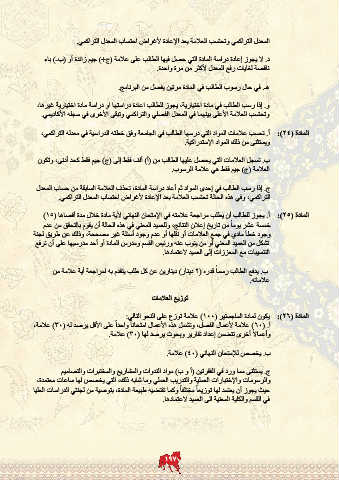 المعدل التراكمي وتحتسب العلامة بعد الإعادة لأغراض احتساب المعدل التراكمي.
د. لا يجوز إعادة دراسة المادة التي حصل فيها الطالب على علامة (ج+) جيم زائدة أو (ب-) باء
ناقصة لغايات رفع المعدل لأكثر من مرة واحدة.
هـ. في حال رسوب الطالب في المادة مرتين يفصل من البرنامج.
و. إذا رسب الطالب في مادة اختيارية، يجوز للطالب اعادة دراستها او دراسة مادة اختيارية غيرها،
وتحتسب العلامة الأعلى بينهما في المعدل الفصلي والتراكمي وتبقى الأخرى في سجله الأكاديمي.
المادة (٢٤): أ. تحسب علامات المواد التي درسها الطالب في الجامعة وفق خطته الدراسية في معدله التراكمي،
ويستثنى من ذلك المواد الإستدراكية.
ب. تسجل العلامات التي يحصل عليها الطالب من (أ) ألف فقط إلى (ج) جيم فقط كحد أدنى، وتكون
العلامة (ج) جيم فقط هي علامة الرسوب.
ج. إذا رسب الطالب في إحدى المواد ثم أعاد دراسة المادة، تحذف العلامة السابقة من حساب المعدل
التراكمي، وفي هذه الحالة تحتسب العلامة بعد الإعادة لأغراض احتساب المعدل التراكمي.
المادة (٢٥): أ. يجوز للطالب أن يطلب مراجعة علامته في الإمتحان النهائي لأية مادة خلال مدة أقصاها (١٥)
خمسة عشر يوماً من تاريخ إعلان النتائج، وللعميد المعني في هذه الحالة أن يقوم بالتحقق من عدم
وجود خطأ مادي في جمع العلامات أو نقلها أو عدم وجود أسئلة غير مصححة، وذلك عن طريق لجنة
تشكل من العميد المعني أو من ينوب عنه ورئيس القسم ومدرس المادة أو أحد مدرسيها على أن ترفع
التنسيبات مع المعززات إلى العميد لاعتمادها.
ب. يدفع الطالب رسماً قدره (٢ دينار) دينارين عن كل طلب يتقدم به لمراجعة أية علامة من
علاماته.
توزيع العلامات
المادة (٢٦): يكون لمادة الماجستير (١٠٠) علامة توزع على النحو التالي:
أ. (٦٠) علامة لأعمال الفصل، وتشمل هذه الأعمال امتحاناً واحداً على الأقل يرصد له (٣٠) علامة،
وأعمالاً أخرى تتضمن إعداد تقارير وبحوث يرصد لها (٣٠) علامة.
ب. يخصص للإمتحان النهائي (٤٠) علامة.
ج. يستثنى مما ورد في الفقرتين (أ و ب) مواد الندوات والمشاريع والمختبرات والتصاميم
والرسومات والإختبارات العملية والتدريب العملي وما شابه ذلك، التي يخصص لها ساعات معتمدة،
حيث يجوز أن يعتمد لها توزيعاً مختلفاً وكما تقتضيه طبيعة المادة، بتوصية من لجنتي الدراسات العليا
في القسم والكلية المعنية الى العميد لاعتمادها.